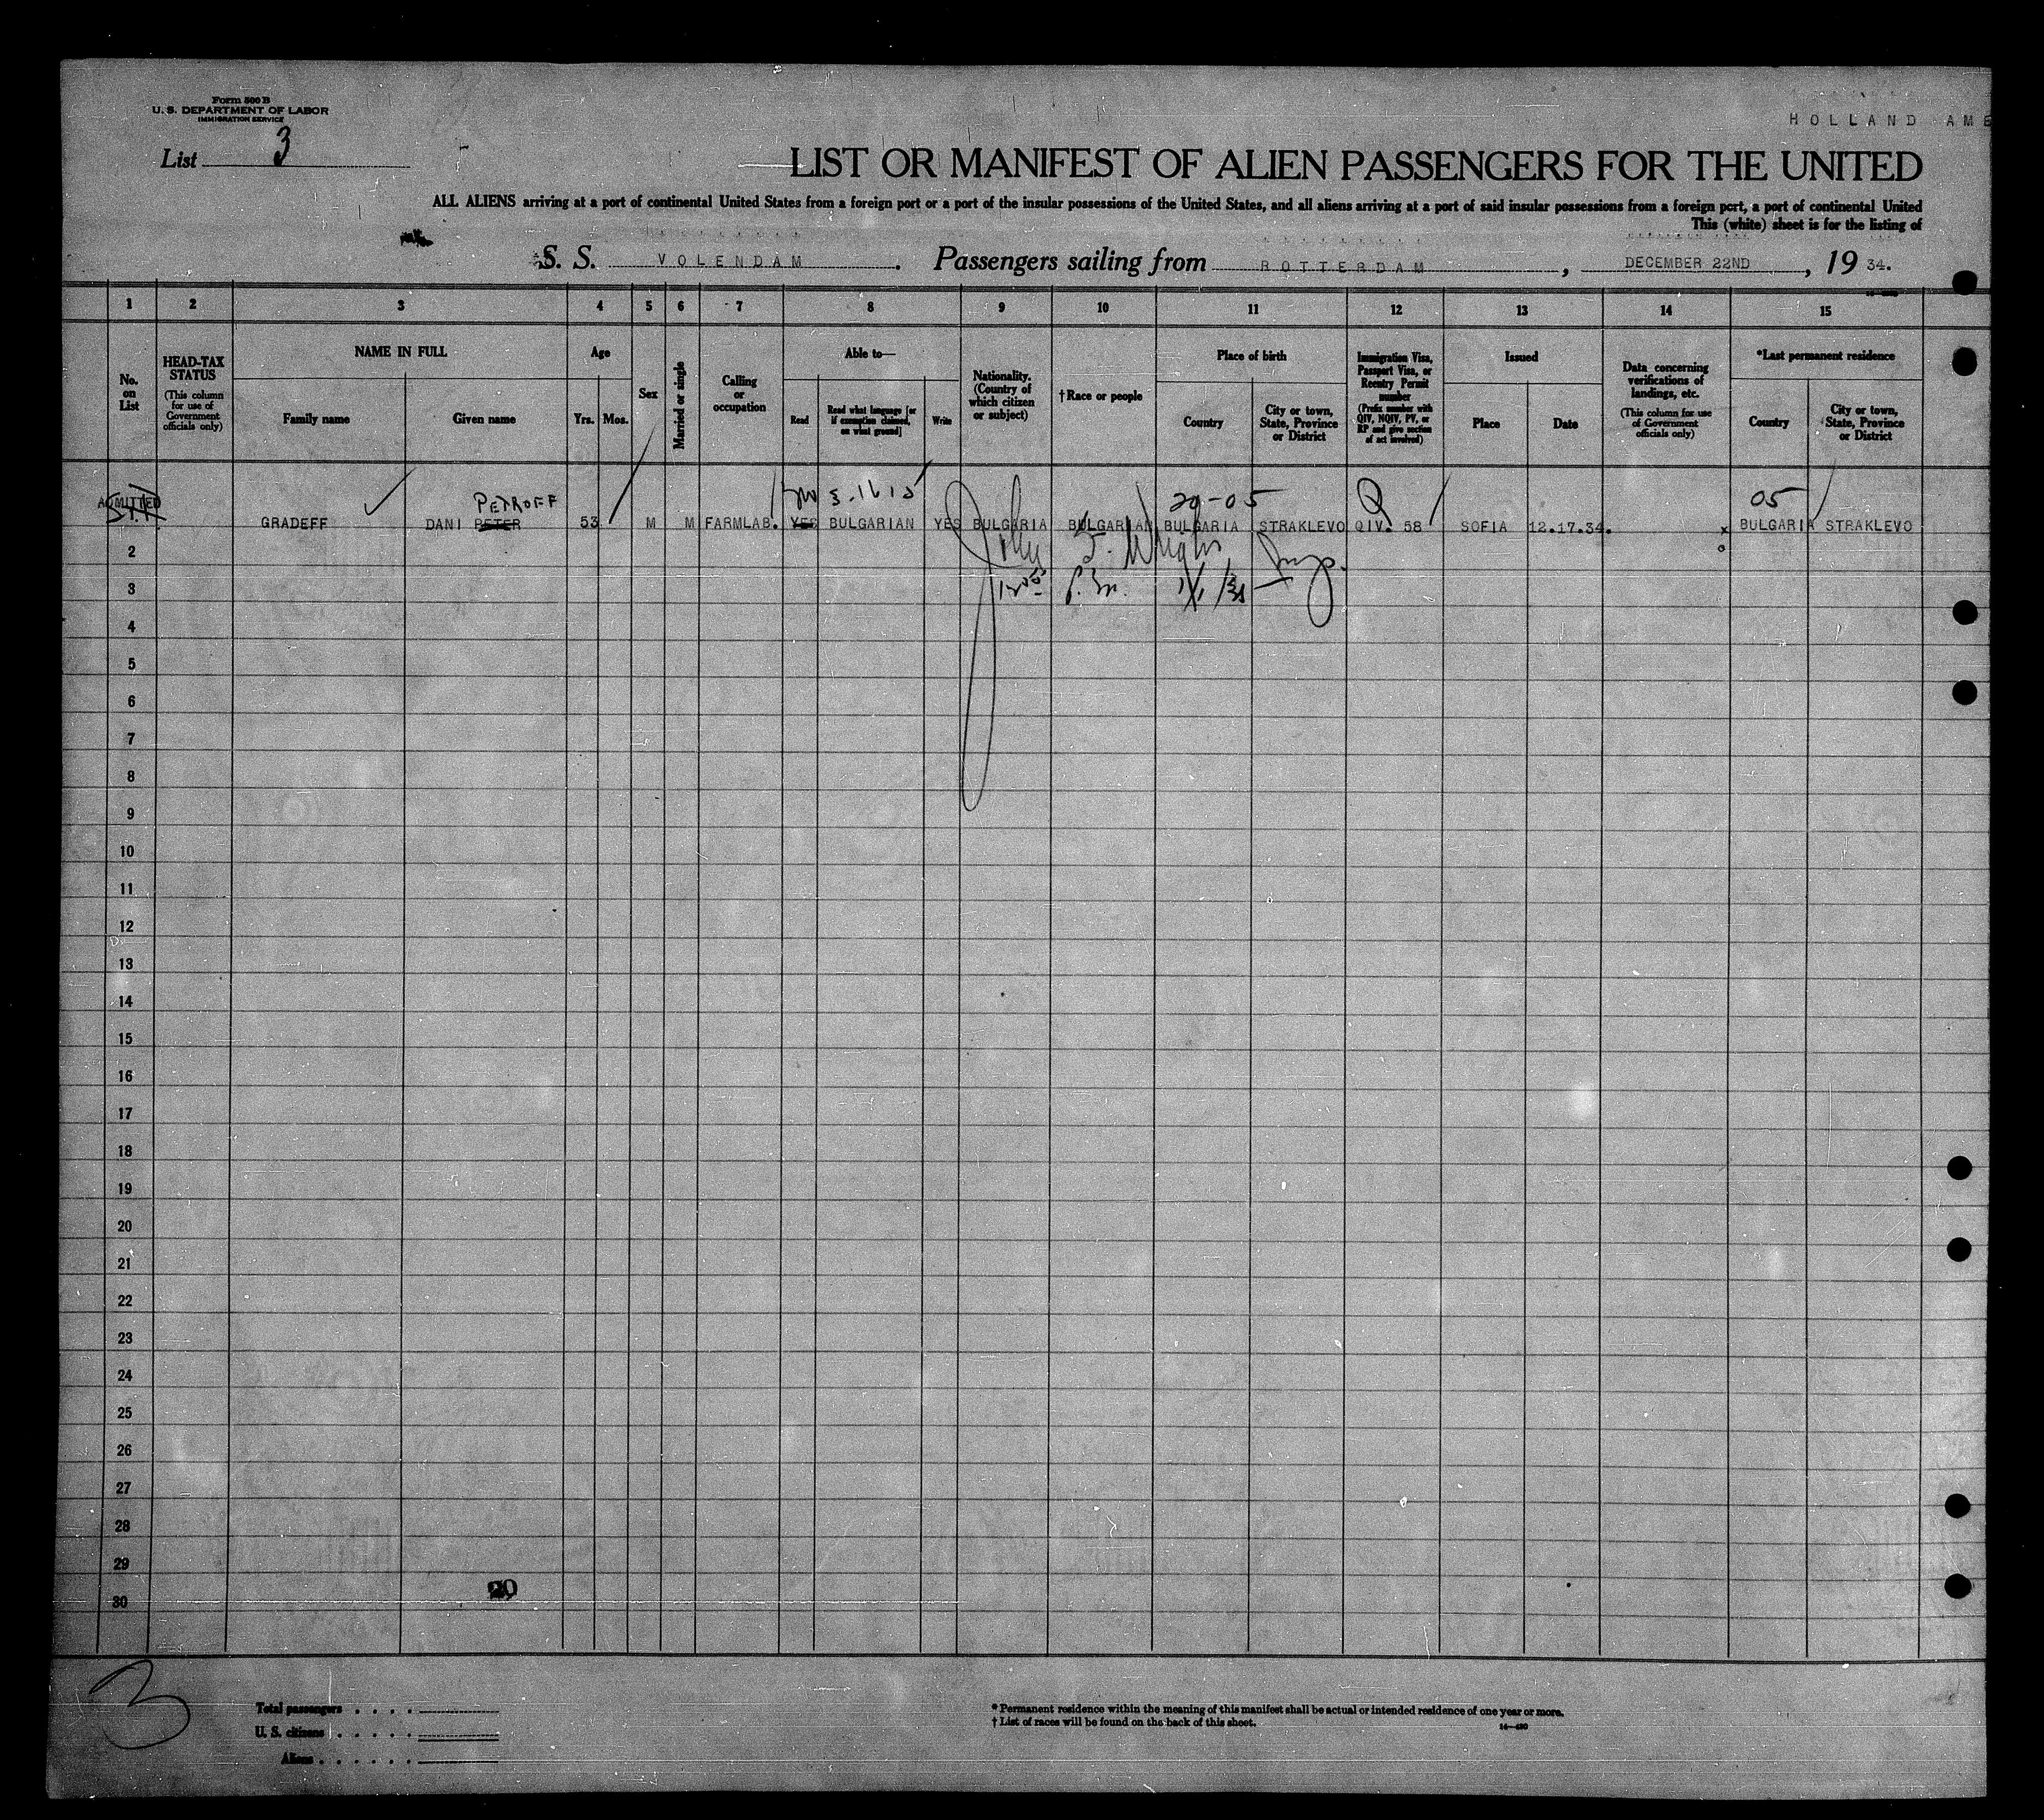 Form 500 B
U. S. DEPARTMENT OF LABOR
IMMIGRATION SERVICE
HOLLAND AME
List 3
LIST OR MANIFEST OF ALIEN PASSENGERS FOR THE UNITED
ALL ALIENS arriving at a port of continental United States from a foreign port or a port of the insular possessions of the United States, and all aliens arriving at a port of said insular possessions from a foreign port, a port of continental United
This (white) sheet is for the listing of
S. S. VOLENDAM. Passengers sailing from ROTTERDAM, DECEMBER 22ND, 19 34.
1 2 3 4 5 6 7 8 9 10 11 12 13 14 15
No. on List
HEAD-TAX STATUS
(This column for use of Government officials only)
NAME IN FULL
Family name
Given name
Age
Yrs. Mos.
Sex
Married or single
Calling or occupation
Able to—
Read
Read what language [or if exemption claimed, on what ground]
Write
Nationality. (Country of which citizen or subject)
† Race or people
Place of birth
Country
City or town, State, Province or District
Immigration Visa, Passport Visa, or Reentry Permit number
(Prefix number with QIV, NQIV, PV, or RP and give section of act involved)
Issued
Place
Date
Data concerning verifications of landings, etc.
(This column for use of Government officials only)
*Last permanent residence
Country
City or town, State, Province or District
PETROFF 20-05 Q 05
ADMITTED
GRADEFF DANI PETER 53 M M FARMLAB. YES BULGARIAN YES BULGARIA BULGARIAN BULGARIA STRAKLEVO QIV. 58 SOFIA 12.17.34. x BULGARIA STRAKLEVO
2
3
4
5
6
7
8
9
10
11
12
13
14
15
16
17
18
19
20
21
22
23
24
25
26
27
28
29
30
20
3
Total passengers . . . .
U. S. citizens . . . . .
Aliens . . . . . .
* Permanent residence within the meaning of this manifest shall be actual or intended residence of one year or more.
† List of races will be found on the back of this sheet.
14—430